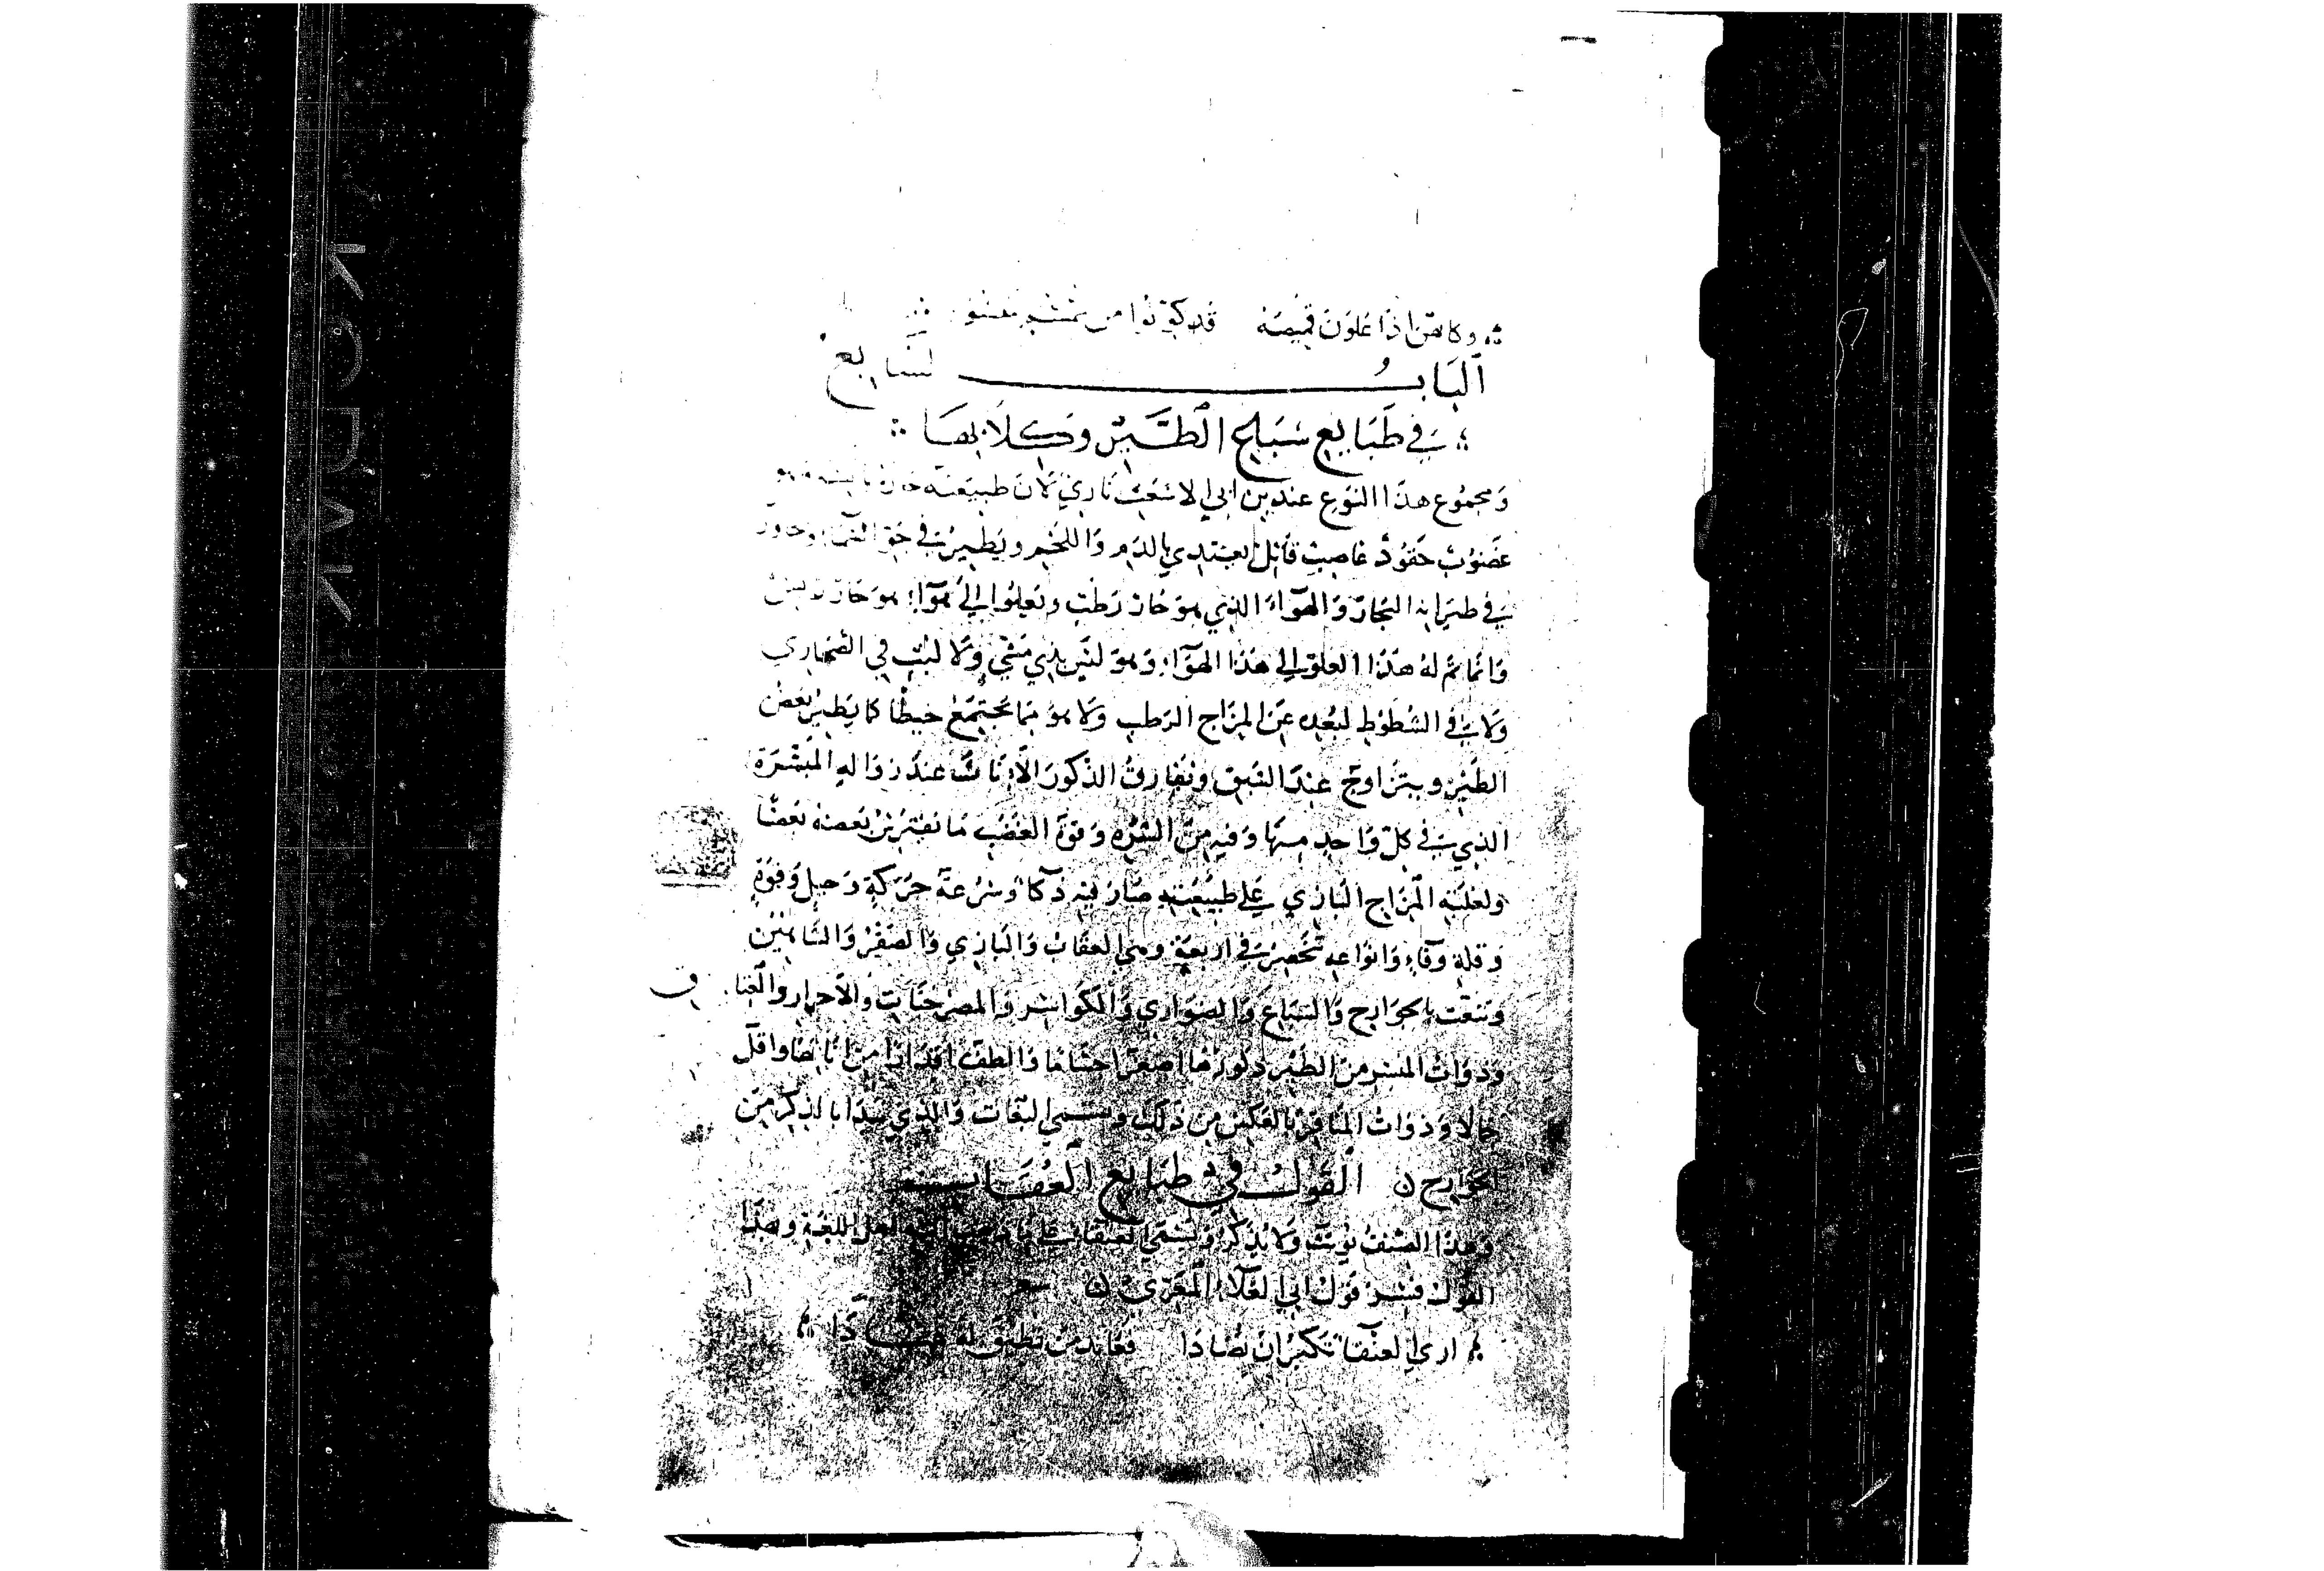 وكانهن اذا علون قميصه قد كونوا من
اَلبَابُ السَّابع
في طَبَايع سِبَاع الطَّيْر وَكِلَابهَا
وَمجموُع هذَا النوَع عند بن ابي الاشعَث نَاري لاَن طبيعَته حَارة يابسة فهو
غَضوُب حَقوُد غاصِب قَاتل يغتدي بالدَم وَاللحَم ويَطيرُ في جوّ السَّمآء وجاوَر
في طيرَانه البخار وَالهوَآءَ الذي هوَ حَار رَطب وتعلوُا الي هوَآء هوَ حَار يابس
وَانما تم لهُ هَذا العلوّ الي هَذا الهوَآء وَهوَ ليَس بذي مَشي وَلا لبث في الصَّحاري
وَلا في الشطوُط لبُعده عَن المزَاج الرَطب وَلا هوُ ممَا يجتمَع خيطًا كما يَطيرُ بَعضُ
الطَيْر ويتزَاوَج عِندَ الشبق وَتفارقُ الذكورَ الاِنَاث عند زوَاله المبَشرَة
الذي في كلّ وَاحد مِنهَا وَفيه مِن الشرَه وَقوَة الغَضَب مَا يفترسُ بَعضه بَعضًا
ولغلبَة المزَاج النَاري عَلي طبيعَته صَارَ فيه ذكآء وَسُرعَة حَرَكة وَحيل وَقوَة
وَقلة وَفآء وَانوَاعه تنحَصرُ في اربعَة وهي العقَاب وَالبَازي وَالصَقرُ وَالشَّاهين
وَتنعَت بالجوَارح وَالسبَاع وَالضوَاري وَالكوَاسِر وَالمضرحيَات وَالاحرار وَالعتا ق
وَذوَات المنسر مِن الطَيْر ذكورُها اصغرُ اجسَامًا وَالطف اقدَارًا مِن انَاثها وَاقل
حالا وَذوَاتُ المناقير بالعَكس مِن ذلك وَيسَمي البُغاث وَالذي يبدَا بالذِكر مِن
الجوَارح ن القَولُ في طبَايع العُقَاب
وَهذَا الصِنفُ يؤنث وَلا يُذكر وَيسَمي اهل اللغة وهذَا
القول فسر قَول ابي العَلآء المعَري ن
اري العنقآء تَكبرُ ان تُصَادَا فعَاند من تطيق له عنادَا